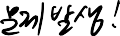 문제발생!